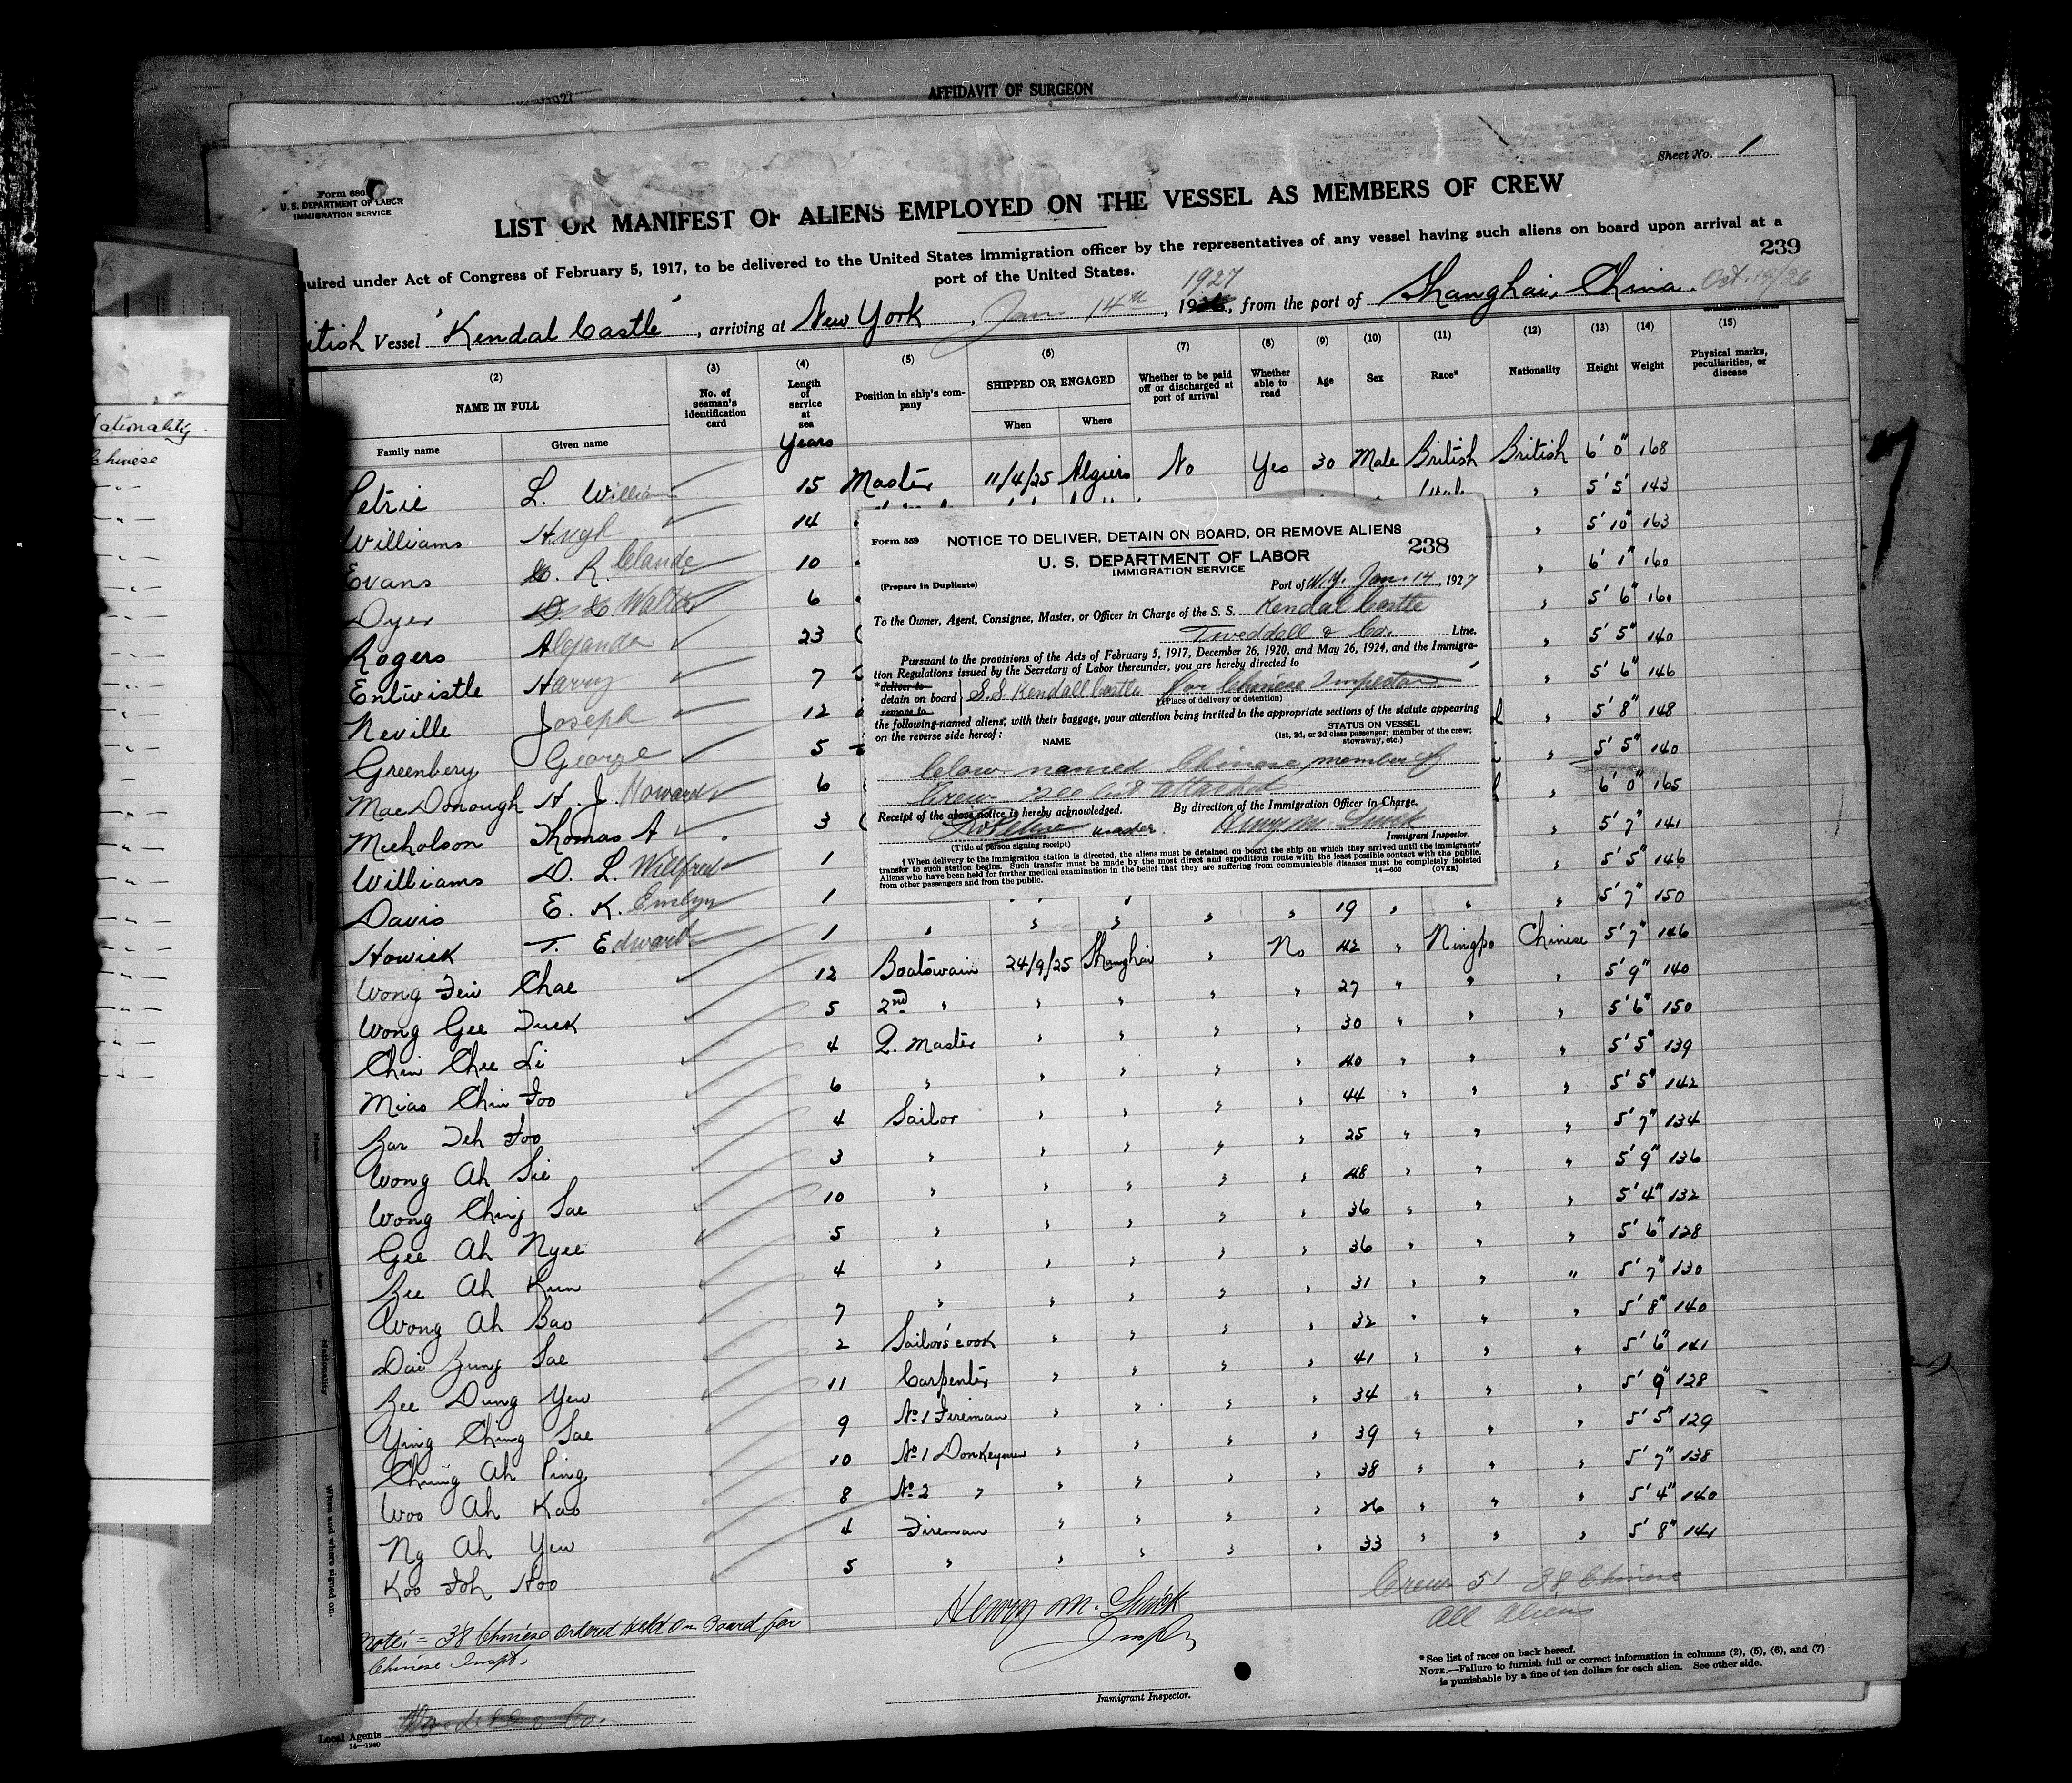 AFFIDAVIT OF SURGEON
Sheet No. 1
Form 680
U. S. DEPARTMENT OF LABOR
IMMIGRATION SERVICE
LIST OR MANIFEST OF ALIENS EMPLOYED ON THE VESSEL AS MEMBERS OF CREW
239
quired under Act of Congress of February 5, 1917, to be delivered to the United States immigration officer by the representatives of any vessel having such aliens on board upon arrival at a
port of the United States.
itish Vessel "Kendal Castle", arriving at New York, Jan. 14th, 1927, from the port of Shanghai, China. Oct. 14/26
(2) NAME IN FULL Family name Given name
(3) No. of seaman's identification card
(4) Length of service at sea Years
(5) Position in ship's company
(6) SHIPPED OR ENGAGED When Where
(7) Whether to be paid off or discharged at port of arrival
(8) Whether able to read
(9) Age
(10) Sex
(11) Race*
(12) Nationality
(13) Height
(14) Weight
(15) Physical marks, peculiarities, or disease
Petrie L. William 15 Master 11/4/25 Algiers No Yes 30 Male British British 6' 0" 168
Williams Hugh 14 " 5' 5" 143
Evans R. Claude 10 " 5' 10" 163
Dyer Walter 6 " 6' 1" 160
Rogers Alexander 23 " 5' 6" 160
Entwistle Harry 7 " 5' 5" 140
Neville Joseph 12 " 5' 6" 146
Greenbery George 5 " 5' 8" 148
MacDonough H. J. Howard 6 " 5' 5" 140
Nicholson Thomas A 3 " 6' 0" 165
Williams D. L. Wilfred 1 " 5' 7" 141
Davis E. K. Emlyn 1 " 5' 5" 146
Howick T. Edward 1 " " " " " 19 " " " 5' 7" 150
Wong Few Chae 12 Boatswain 24/9/25 Shanghai " No 42 " Ningpo Chinese 5' 7" 146
Wong Gee Tuck 5 2nd " " " " " 27 " " " 5' 9" 140
Chin Chee Li 4 Q. Master " " " " 30 " " " 5' 6" 150
Miao Chin Foo 6 " " " " " 40 " " " 5' 5" 139
Zar Teh Foo 4 Sailor " " " " 44 " " " 5' 5" 142
Wong Ah Sie 3 " " " " " 25 " " " 5' 7" 134
Wong Ching Sae 10 " " " " " 48 " " " 5' 9" 136
Gee Ah Nyee 5 " " " " " 36 " " " 5' 4" 132
Zee Ah Kun 4 " " " " " 36 " " " 5' 6" 128
Wong Ah Bao 7 " " " " " 31 " " " 5' 7" 130
Dai Zung Sae 2 Sailors cook " " " " 32 " " " 5' 8" 140
Zee Dung Yew 11 Carpenter " " " " 41 " " " 5' 6" 141
Ying Ching Sae 9 No 1 Fireman " " " " 34 " " " 5' 9" 128
Chung Ah Ping 10 No 1 Donkeyman " " " " 39 " " " 5' 5" 129
Woo Ah Kao 8 No 2 " " " " " 38 " " " 5' 7" 138
Ng Ah Yew 4 Fireman " " " " 26 " " " 5' 4" 140
Koo Foh Hoo 5 " " " " " 33 " " " 5' 8" 141
Form 559
NOTICE TO DELIVER, DETAIN ON BOARD, OR REMOVE ALIENS
238
U. S. DEPARTMENT OF LABOR
IMMIGRATION SERVICE
(Prepare in Duplicate)
Port of N.Y. Jan. 14, 1927
To the Owner, Agent, Consignee, Master, or Officer in Charge of the S. S. Kendal Castle
Tweddell & Co. Line.
Pursuant to the provisions of the Acts of February 5, 1917, December 26, 1920, and May 26, 1924, and the Immigra-
tion Regulations issued by the Secretary of Labor thereunder, you are hereby directed to
*deliver to
detain on board S.S. Kendall Castle for Chinese Inspector
remove to
(Place of delivery or detention)
the following-named aliens, with their baggage, your attention being invited to the appropriate sections of the statute appearing
on the reverse side hereof:
NAME
STATUS ON VESSEL
(1st, 2d, or 3d class passenger; member of the crew; stowaway, etc.)
named Chinese member of
Crew see list attached
Receipt of the above notice is hereby acknowledged.
By direction of the Immigration Officer in Charge.
master
Henry M. Quick
(Title of person signing receipt)
Immigrant Inspector.
† When delivery to the immigration station is directed, the aliens must be detained on board the ship on which they arrived until the immigrants'
transfer to such station begins. Such transfer must be made by the most direct and expeditious route with the least possible contact with the public.
Aliens who have been held for further medical examination in the belief that they are suffering from communicable diseases must be completely isolated
from other passengers and from the public.
14—660 (OVER)
Nationality
Chinese
Name
Age
Nationality
When and where signed on.
Note: = 38 Chinese ordered Held On Board for
Chinese Inspt.
Henry M. Quick
Inspt
Crew 51 38 Chinese
All Aliens
* See list of races on back hereof.
NOTE.—Failure to furnish full or correct information in columns (2), (5), (6), and (7)
is punishable by a fine of ten dollars for each alien. See other side.
Immigrant Inspector.
Local Agents
14—1240